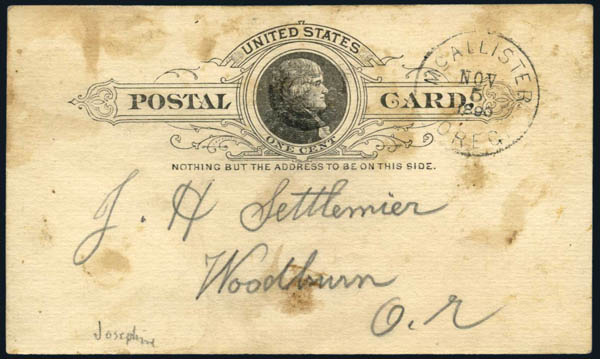 UNITED STATES
POSTAL CARD.
ONE CENT
NOTHING BUT THE ADDRESS TO BE ON THIS SIDE.
MCALLISTER
NOV
5
OREG.
J. H Settlemier
Woodburn
O.r
Josephine